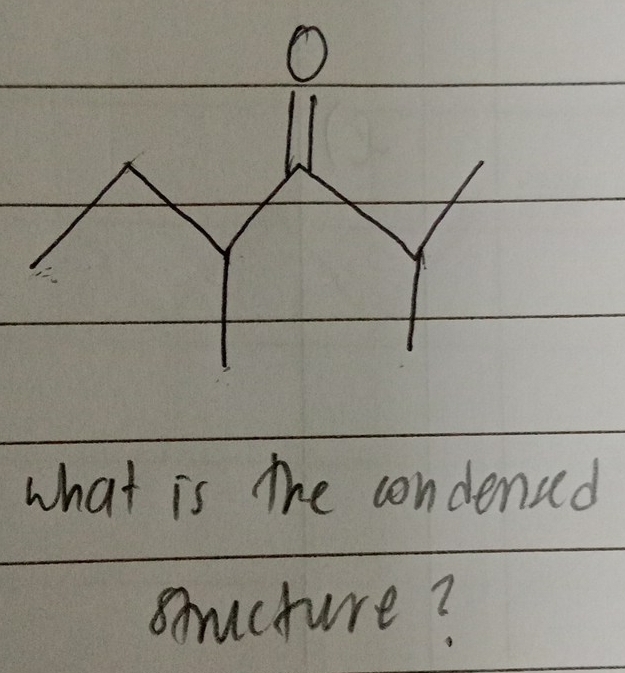 O
what is the condensed
structure?